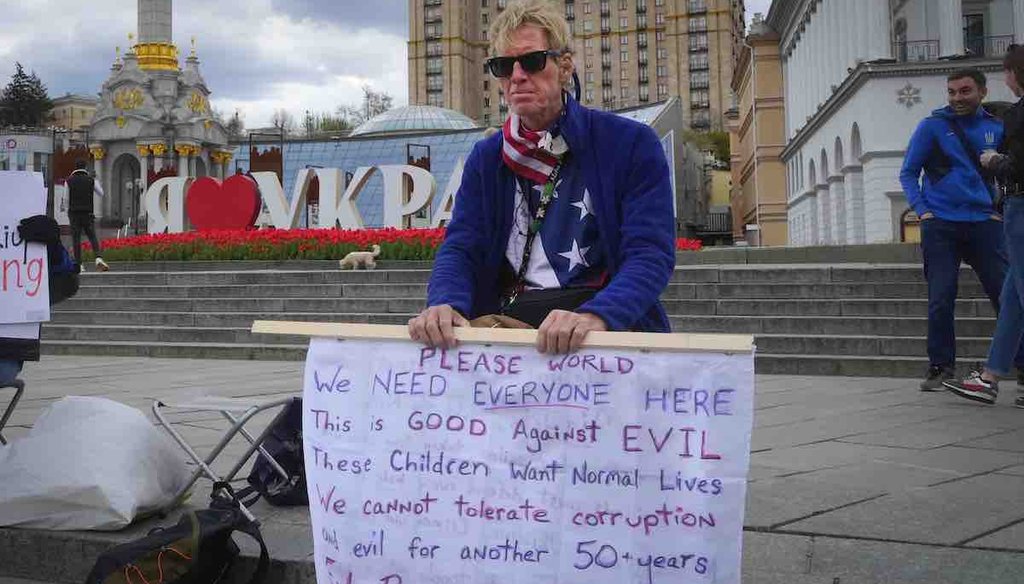 Я УКРА
ng
PLEASE WORLD
WE NEED EVERYONE HERE
This is GOOD Against EVIL
These Children Want Normal Lives
We cannot tolerate corruption
and evil for another 50+years